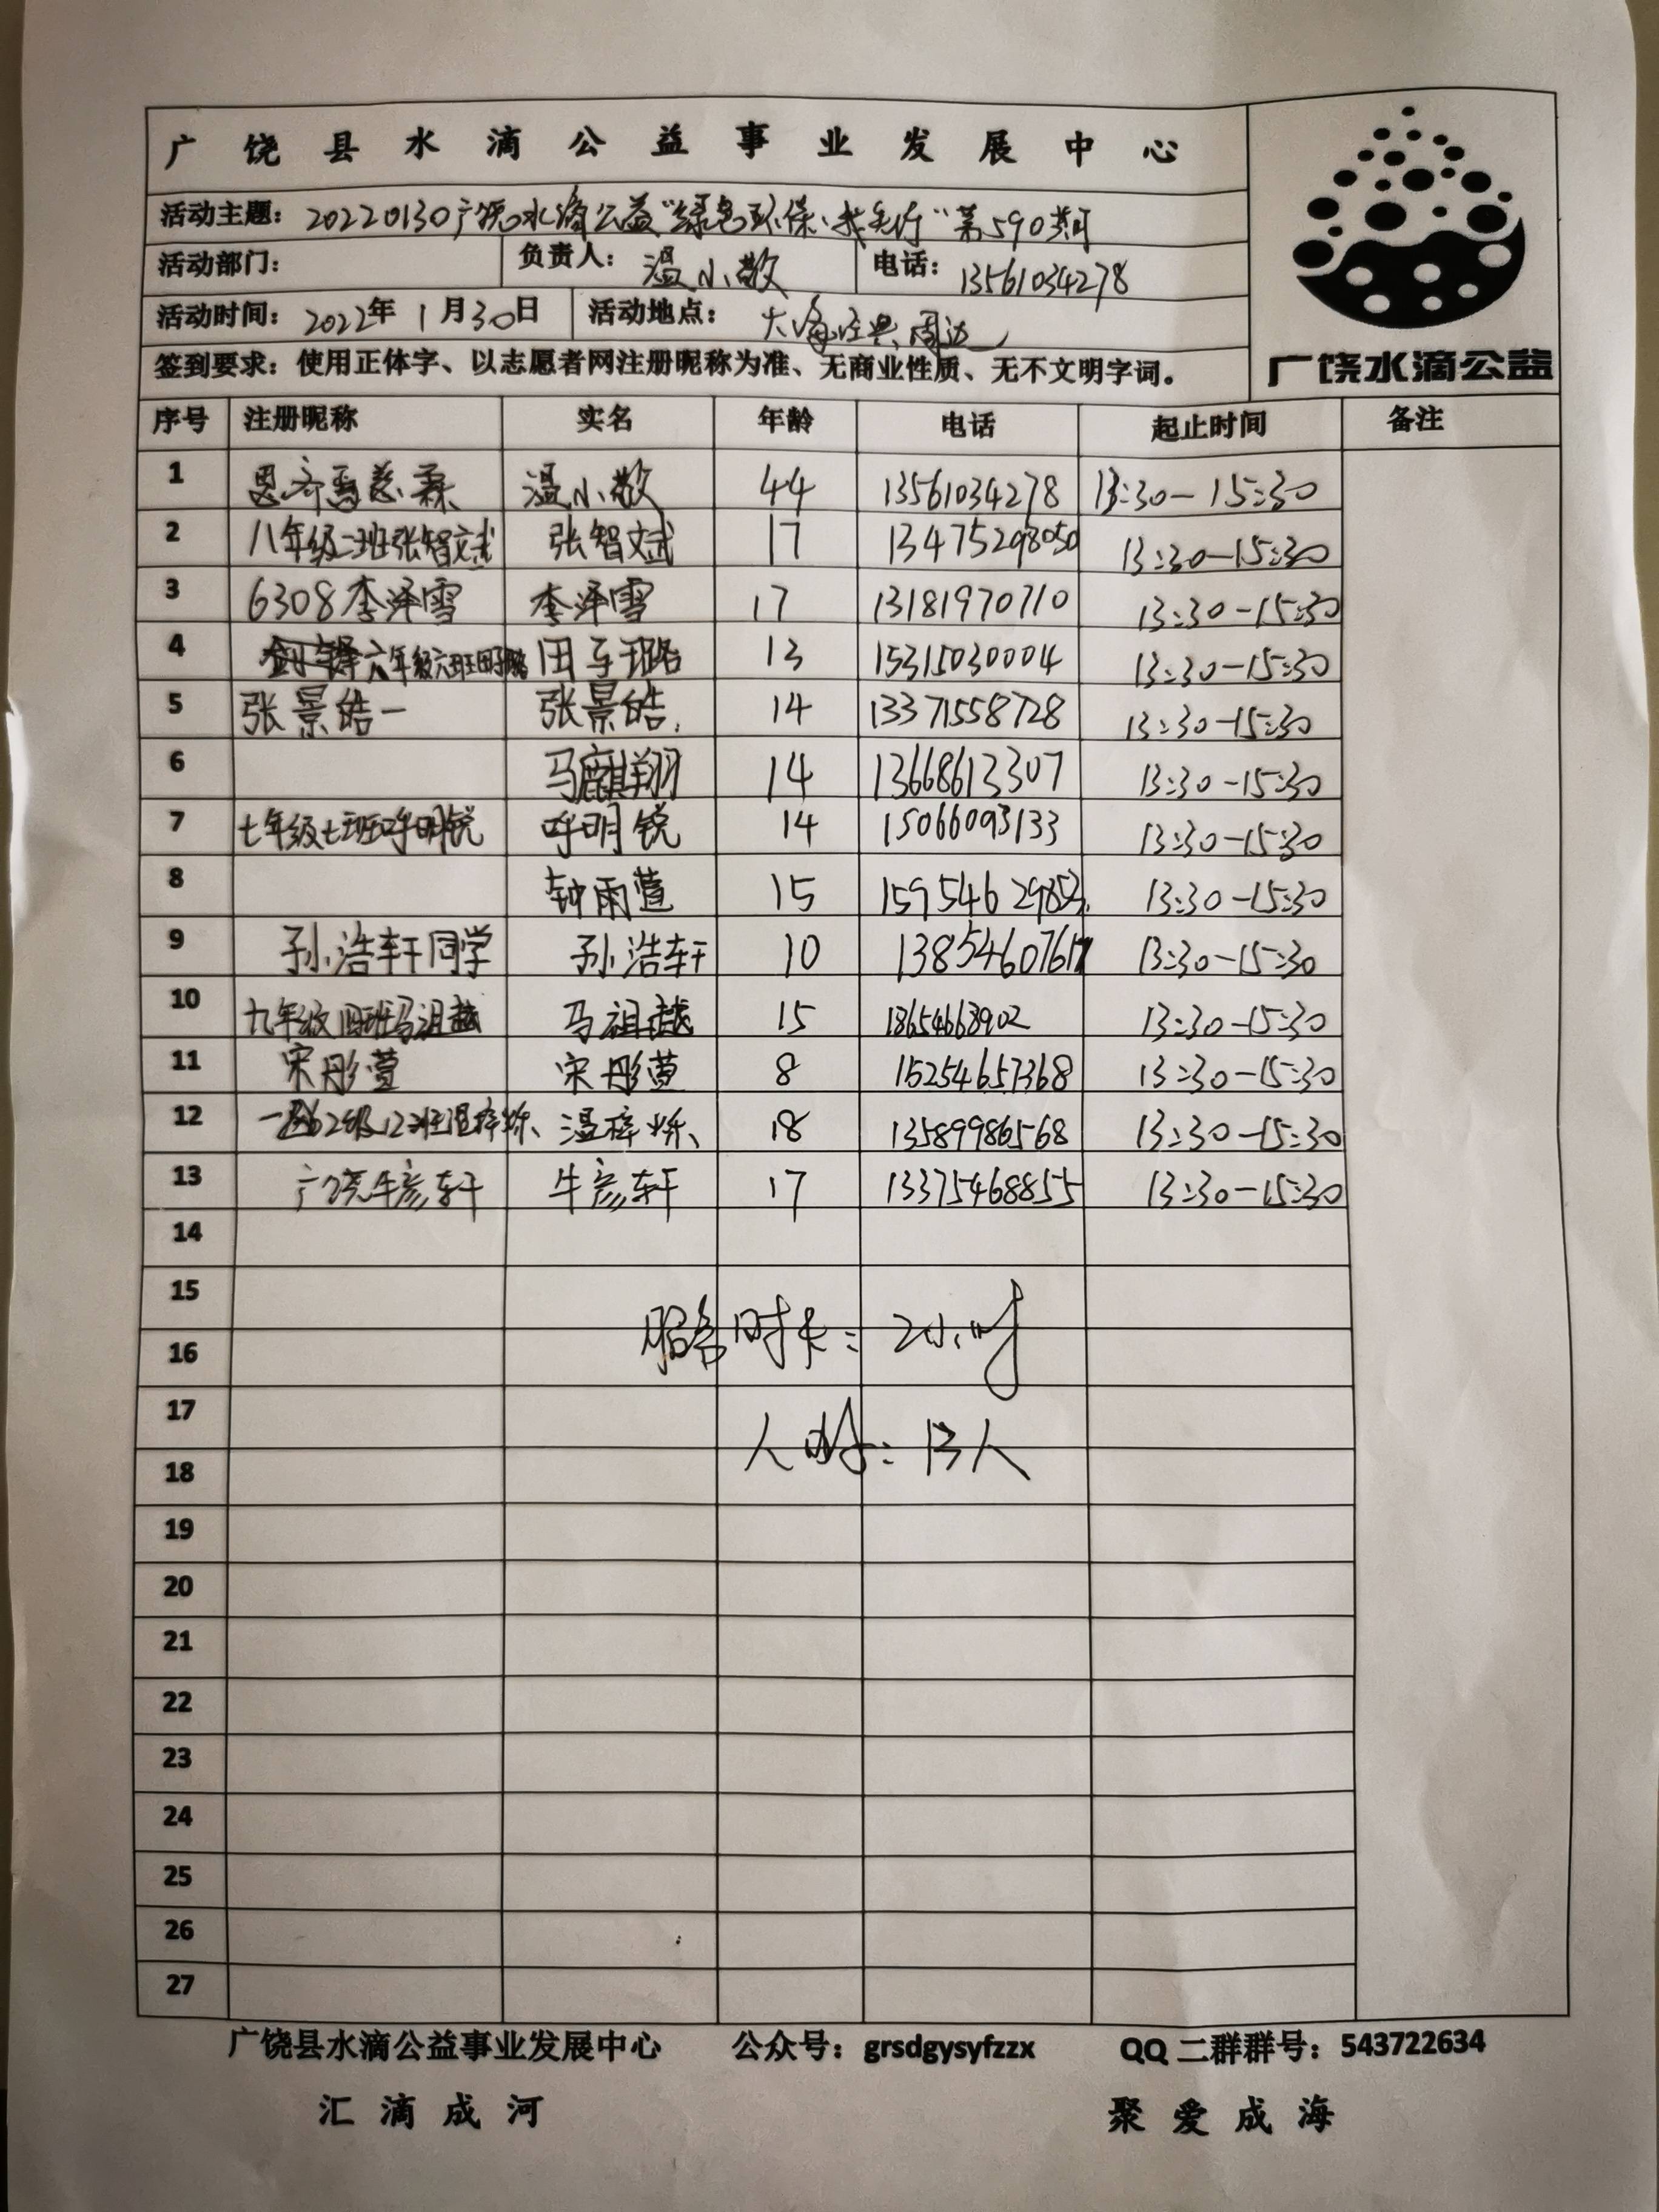 广饶县水滴公益事业发展中心
活动主题：20220130广饶水滴公益“绿色环保、我先行”第590期
活动部门： 负责人：温小敬 电话：13561034278
活动时间：2022年1月30日 活动地点：大海经典周边
签到要求：使用正体字、以志愿者网注册昵称为准、无商业性质、无不文明字词。
广饶水滴公益
序号 注册昵称 实名 年龄 电话 起止时间 备注
1 温小敬 44 13561034278 13:30-15:30
2 八年级二班张智斌 张智斌 17 13475298050 13:30-15:30
3 6308李泽雪 李泽雪 17 13181970710 13:30-15:30
4 六年级六班田 田 13 15315030004 13:30-15:30
5 张景皓一 张景皓 14 13371558728 13:30-15:30
6 马麒翔 14 13668613307 13:30-15:30
7 七年级七班呼明锐 呼明锐 14 15066093133 13:30-15:30
8 钟雨萱 15 15954629853 13:30-15:30
9 孙浩轩同学 孙浩轩 10 13854607617 13:30-15:30
10 九年级四班马祖越 马祖越 15 18654668902 13:30-15:30
11 宋彤萱 宋彤萱 8 15254657368 13:30-15:30
12 级12班温梓烁 温梓烁 18 13589986568 13:30-15:30
13 广饶牛彦轩 牛彦轩 17 13375468855 13:30-15:30
14
15
服务时长：2小时
16
17
人数：13人
18
19
20
21
22
23
24
25
26
27
广饶县水滴公益事业发展中心 公众号：grsdgysyfzzx QQ二群群号：543722634
汇滴成河 聚爱成海